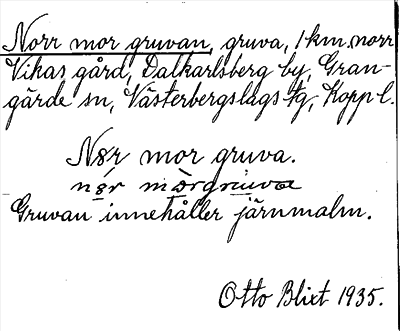 Norr mor gruvan, gruva, 1 km. norr
Vikas gård, Dalkarlsberg by, Gran-
gärde sn, Västerbergslags tg, Kopp l.
Nor mor gruva.
Gruvan innehåller järnmalm.
Otto Blixt 1935.